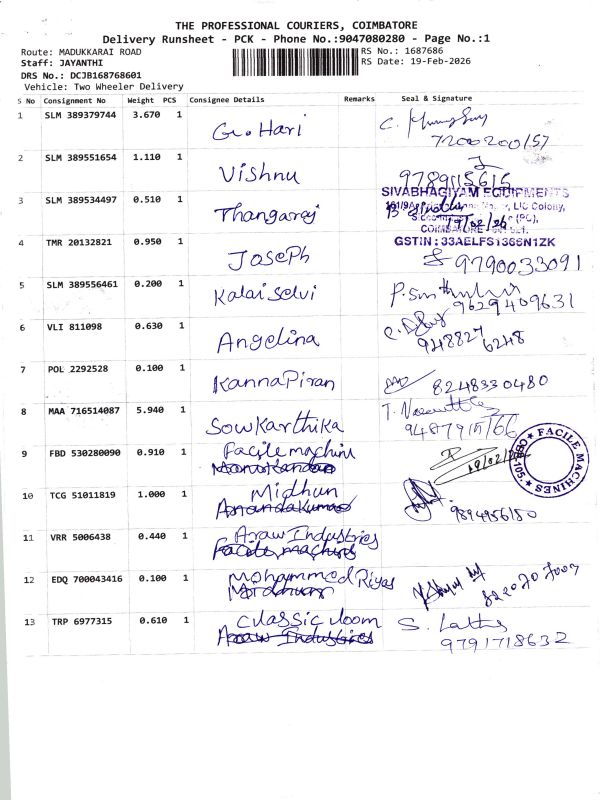 THE PROFESSIONAL COURIERS, COIMBATORE
Delivery Runsheet - PCK - Phone No.:9047080280 - Page No.:1
Route: MADUKKARAI ROAD
RS No.: 1687686
Staff: JAYANTHI
RS Date: 19-Feb-2026
DRS No.: DCJB168768601
Vehicle: Two Wheeler Delivery
S No Consignment No Weight PCS Consignee Details Remarks Seal & Signature
1 SLM 389379744 3.670 1 G. Hari
7200200157
2 SLM 389551654 1.110 1 Vishnu
9789115615
SIVABHAGIYAM EQUIPMENTS
3 SLM 389534497 0.510 1 Thangaraj
LIC Colony,
19/02/26
GSTIN : 33AELFS1366N1ZK
4 TMR 20132821 0.950 1 Joseph
9790033091
5 SLM 389556461 0.200 1 Kalai selvi
9629409631
6 VLI 811098 0.630 1 Angelina
948827 6248
7 POL 2292528 0.100 1 Kanna Piran
8248330480
8 MAA 716514087 5.940 1 Sowkarthika
9487915166
9 FBD 530280090 0.910 1 Facile machini
Manikandan
19/02/26
FACILE MACHINES
10 TCG 51011819 1.000 1 Midhun
Anandakumar
9894956150
11 VRR 5006438 0.440 1 Araw Industries
Facile machini
12 EDQ 700043416 0.100 1 Mohammed Riyas
Midhun
13 TRP 6977315 0.610 1 Classic loom
Araw Industries
S. Latha
9791718632